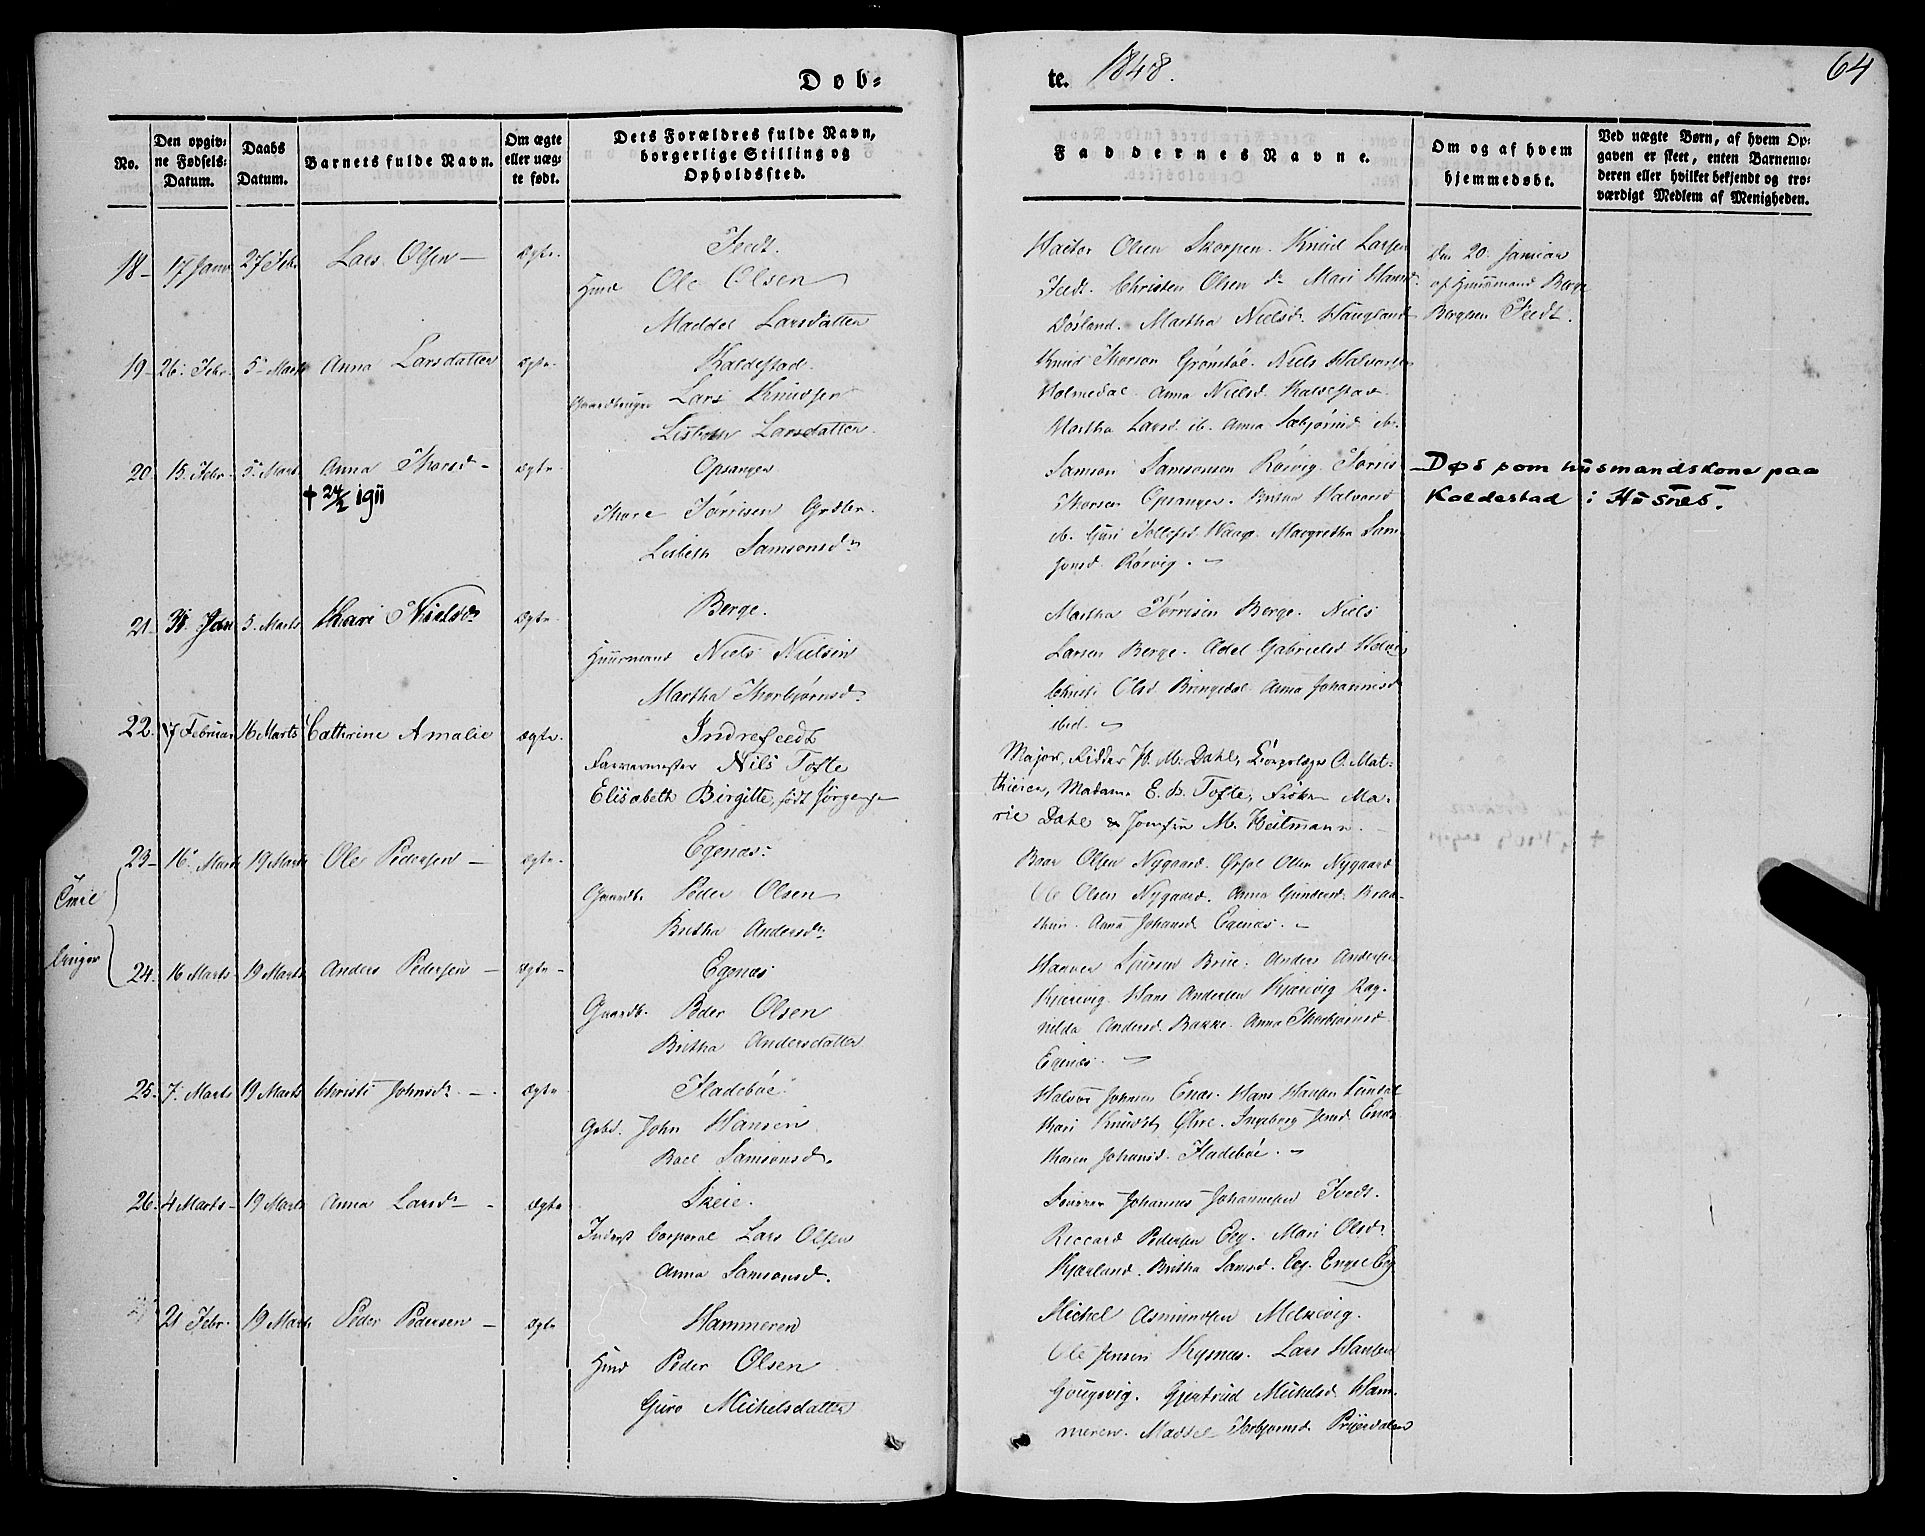 Døb-
te. 1848.
64
No.
Den opgiv-
ne Fødsels-
Datum.
Daabs
Datum.
Barnets fulde Navn.
Om ægte
eller uæg-
te født.
Dets Forældres fulde Navn,
borgerlige Stilling og
Opholdssted.
Faddernes Navne.
Om og af hvem
hjemmedøbt.
Ved uægte Børn, af hvem Op-
gaven er skeet, enten Barnemo-
deren eller hvilket bekjendt og tro-
værdigt Medlem af Menigheden.
18- 17 Janv 27 Febr Lars Olsen - Ægte.
Feedt.
Huusmd Ole Olsen
Maddel Larsdatter
Olsen Skorpen. Knud Larsen
Feedt. Christen Olsen do Mari Hansd.
Døsland. Martha Nielsd. Haugland
Den 20. Januar
af Huusmand Berge
Bergesen Feedt.
19- 26. Febr. 5 Marts Anna Larsdatter Ægte.
Kaldestad.
Gaardbruger Lars Knudsen
Lisbeth Larsdatter.
Knud Thorsen Grønstøl. Niels Halvorsen
Holmedal. Anna Nielsd. Kaldestad.
Martha Larsd. ib. Anna Sæbjørnsd. ib.
20. 15. Febr. 5 Marts Anna Thorsd - Ægte.
† 24/2 1911
Opsanger
Thore Tørrisen Grdbr.
Lisbeth Samsonsdr
Samson Samsonsen Rørvig. Tørris
Thorsen Opsanger. Britha Halvorsd
ib. Guri Tollefsd. Waage. Margretha Sam-
sonsd. Rørvig. -
Døs som husmandskone paa
Kaldestad i Husnes.
21- 31. Jan 5. Marts Kari Nielsdr Ægte.
Berge.
Huusmand Niels Nielsen
Martha Thorbjørnsd.
Martha Tørrisen Berge. Niels
Larsen Berge. Adel Gabrielsd.
Christi Olsd. Bringedal. Anna Johannesd
ibid. -
22. 17 Februar 16 Marts Cathrine Amalie ægte.
Indrefeedt
Farvermester Nils Tofte
Elisabeth Birgitte, født Jørgensen
Major, Ridder H. M. Dahl, Corpslæge C. Mat-
thiesen, Madam. E. B. Tofte, Frøken Ma-
rie Dahl & Jomfru M. Heitmann.
Tvil
linger
23- 16. Marts 19 Marts Ole Pedersen - Ægte.
Egenæs.
Gaardb. Peder Olsen
Britha Andersdr.
Baar Olsen Nygaard. Olsen Nygaard
Ole Olsen Nygaard. Anna Gundersd. Braa-
then. Anna Johansd Egenæs. -
24. 16 Marts 19 Marts Anders Pedersen - Ægte -
Egenæs
Gaardb. Peder Olsen
Britha Andersdatter
Sjursen Brue. Anders Andersen
Kjærevig. Hans Andersen Kjærevig Rag-
nilda Andersd. Bakke. Anna Thorbjørnsd
Egenæs. -
25. 7. Marts 19 Marts Christi Johnsdr. - Ægte
Fladebøe.
Gbd. John Hansen
Roel Samsonsd.
Halvor Johnsen Enæs. Hans Hansen Sundal
Kari Knudsd, Ølve. Ingeborg Jensd. Enæs
Karen Johansd. Fladebøe. -
26. 4 Marts - 19 Marts Anna Larsd - Ægte
Skeie.
Inderst Corporal Lars Olsen
Anna Samsonsd.
Johannes Johannesen Tvedt.
Riccard Pedersen Eeg. Mari Olsdr.
Kjærland. Britha Samsd. Eeg. Engel Eg.
27 21 Febr. 19 Marts Peder Pedersen - Ægte
Hammeren
Huusmd Peder Olsen
Guro Michelsdatter
Michel Asmundsen Melkevig.
Ole Jensen Rysnæs. Lars Hansen
Gougsvig. Gjertrud Michelsd. Ham-
meren. Maddel Thorbjørnsd.